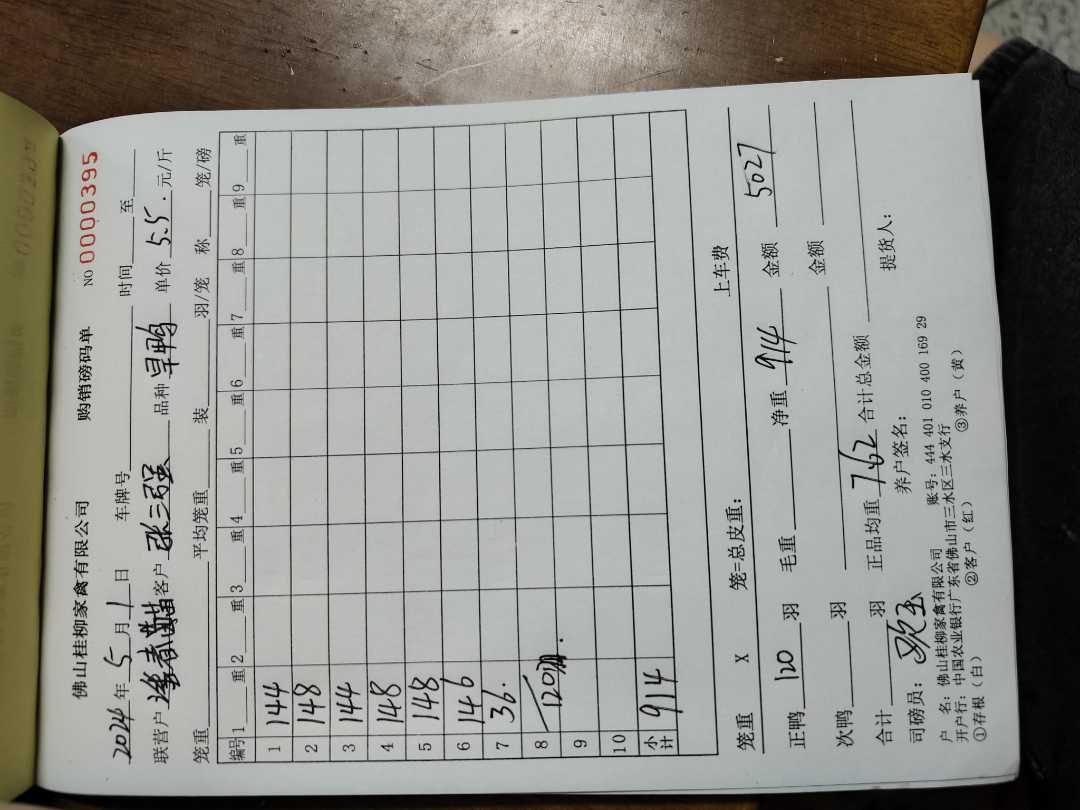 佛山桂柳家禽有限公司 购销磅码单 NO 0000395
2024年5月1日 车牌号 时间 至
联营户 客户 张三强 品种 旱鸭 单价 5.5. 元/斤
笼重 平均笼重 装 羽/笼 称 笼/磅
编号 1 重 2 重 3 重 4 重 5 重 6 重 7 重 8 重 9 重
1 144
2 148
3 144
4 148
5 148
6 146
7 36.
8 120
9
10
小计 914
笼重 X 笼=总皮重: 上车费
正鸭 120 羽 毛重 净重 914 金额 5027
次鸭 羽 金额
合计 羽 正品均重 7.62 合计总金额
司磅员: 养户签名: 提货人:
户 名: 佛山桂柳家禽有限公司 账号: 444 401 010 400 169 29
开户行: 中国农业银行广东省佛山市三水区三水支行
①存根(白) ②客户(红) ③养户(黄)